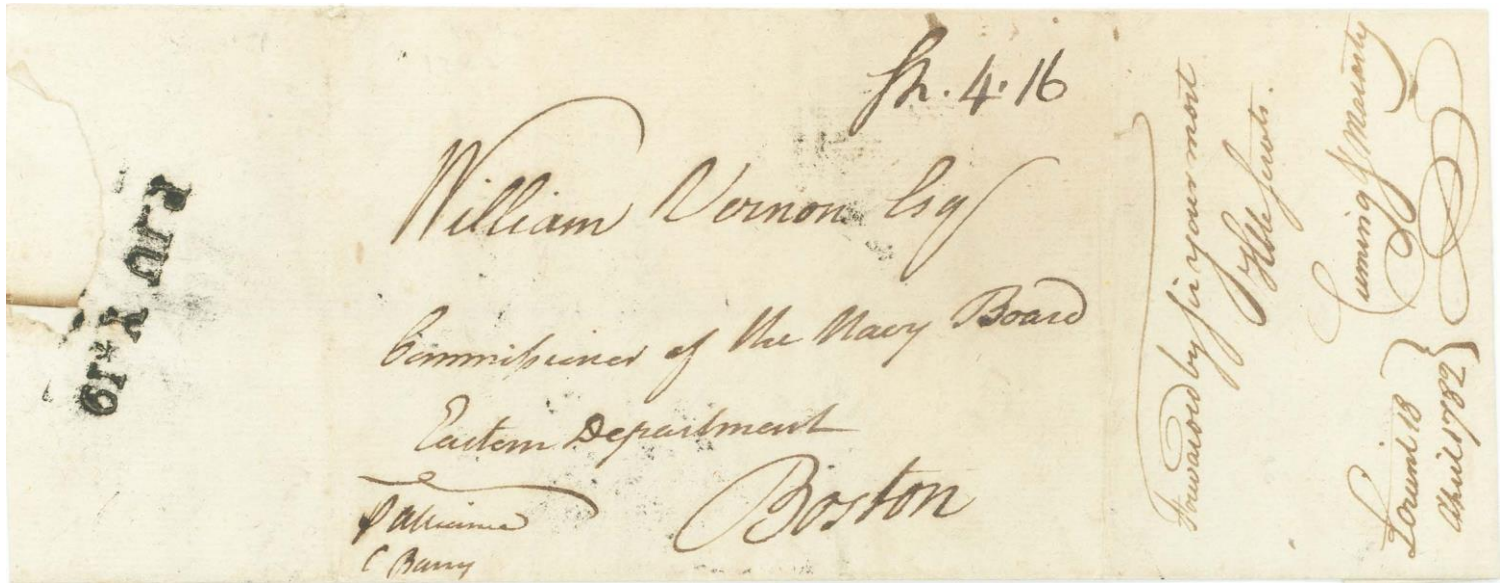 Sh. 4.16
William Vernon Esq
Commissioner of the Navy Board
Eastern Department
Boston
℘ Alliance
C Barry
Forwarded by Sir your most
Hble Servts.
Cuming & Macarty
Lorient 18
April 1782